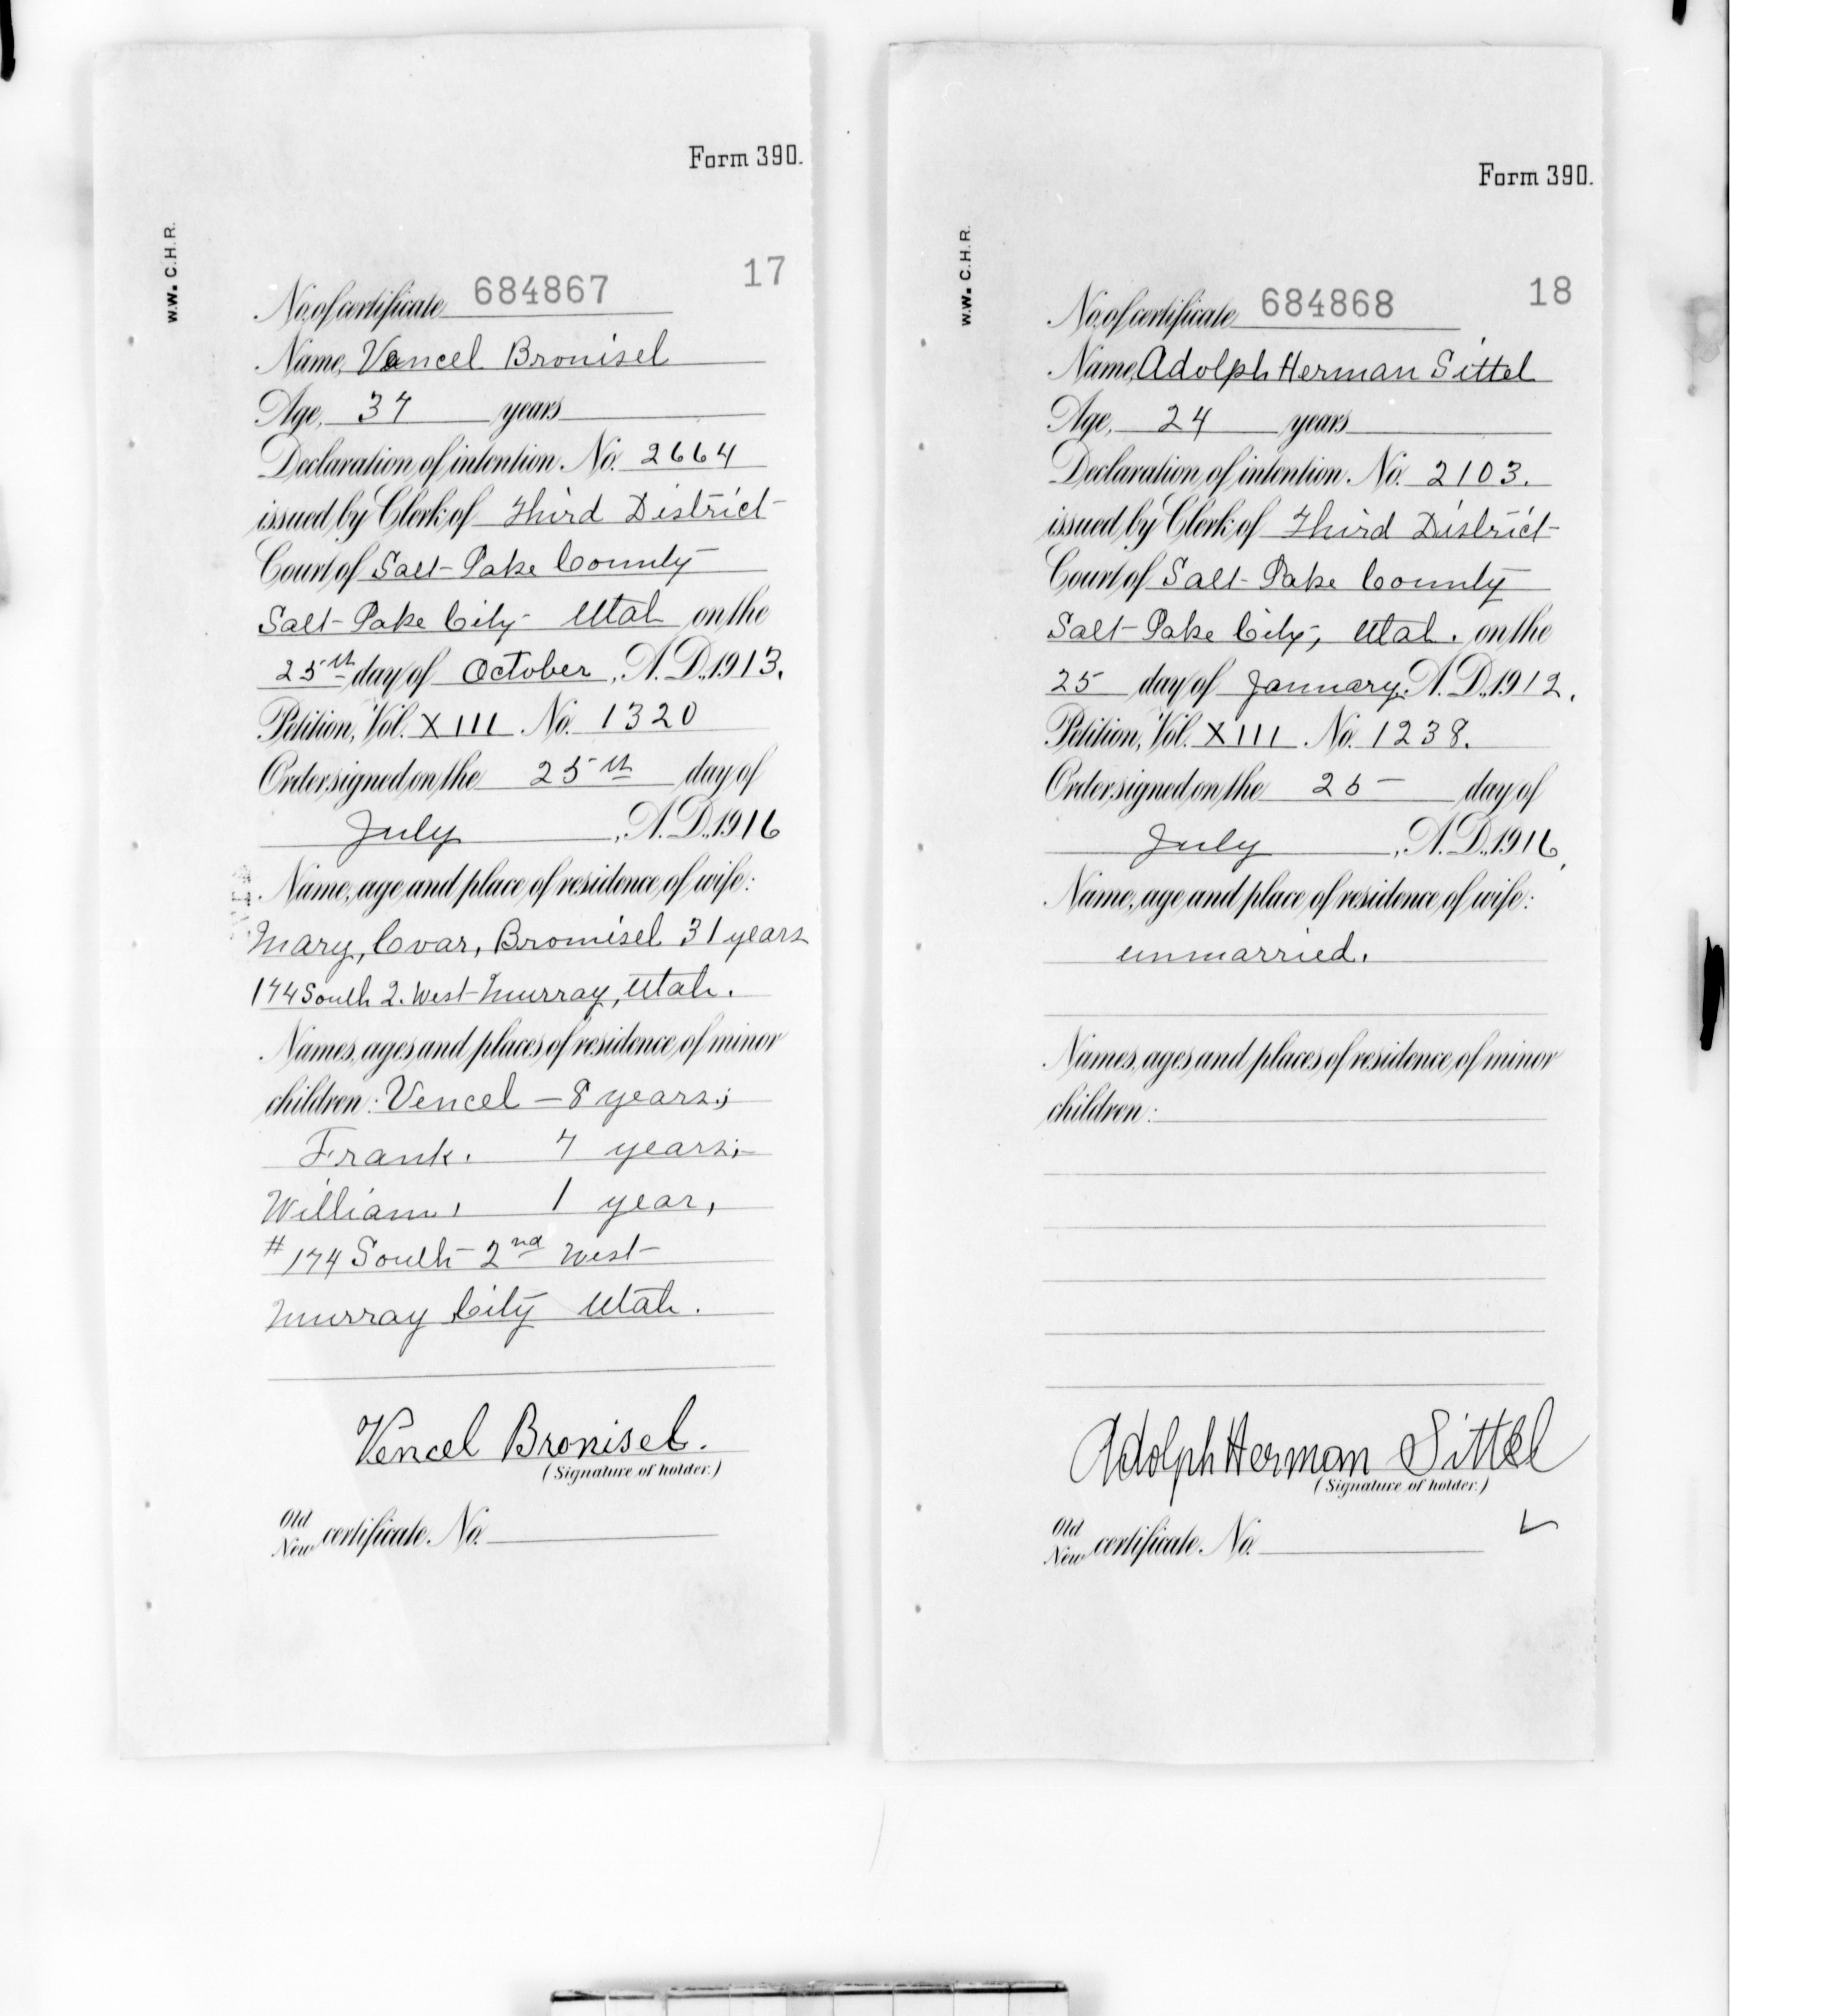 Form 390.
W.W. C.H.R.
17
No. of certificate 684867
Name, Vencel Bronisel
Age, 37 years
Declaration of intention No. 2664
issued by Clerk of Third District
Court of Salt Lake County
Salt Lake City Utah on the
25th day of October, A.D. 1913.
Petition, Vol. XIII No. 1320
Order signed on the 25th day of
July, A.D. 1916
Name, age and place of residence of wife:
Mary, Cvar, Bronisel 31 years
174 South 2. West Murray, Utah.
Names, ages and places of residence of minor
children: Vencel – 8 years;
Frank. 7 years;
William, 1 year,
#174 South 2nd West
Murray City Utah.
Vencel Bronisel.
(Signature of holder.)
Old
New certificate No.
Form 390.
W.W. C.H.R.
18
No. of certificate 684868
Name, Adolph Herman Sittel
Age, 24 years
Declaration of intention No. 2103.
issued by Clerk of Third District
Court of Salt Lake County
Salt Lake City, Utah. on the
25 day of January, A.D. 1912.
Petition, Vol. XIII No. 1238.
Order signed on the 25 day of
July, A.D. 1916.
Name, age and place of residence of wife:
unmarried.
Names, ages and places of residence of minor
children:
Adolph Herman Sittel
(Signature of holder.)
Old
New certificate No.